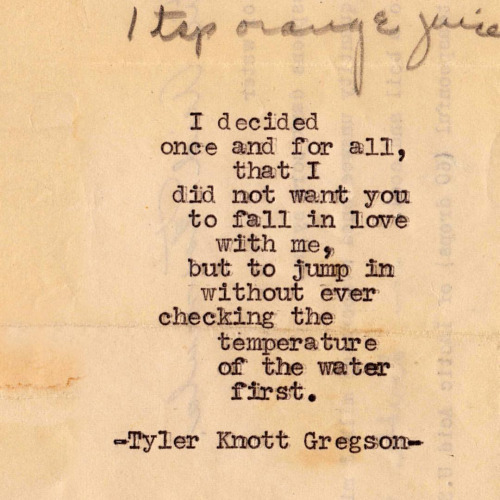 1 tsp orange juice
I decided
once and for all,
that I
did not want you
to fall in love
with me,
but to jump in
without ever
checking the
temperature
of the water
first.
-Tyler Knott Gregson-